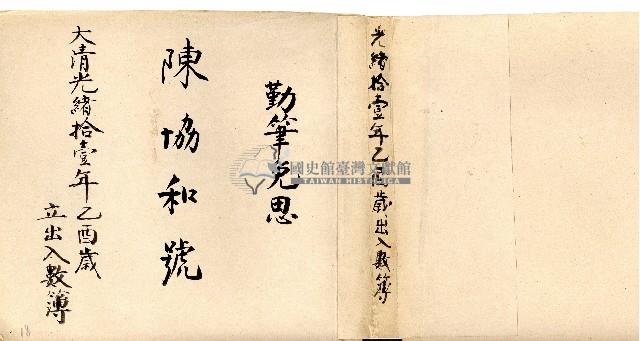 光緒拾壹年乙酉歲出入數簿
勤筆免思
陳協和號
大清光緒拾壹年乙酉歲
立出入數簿
國史館臺灣文獻館
TAIWAN HISTORICA
18